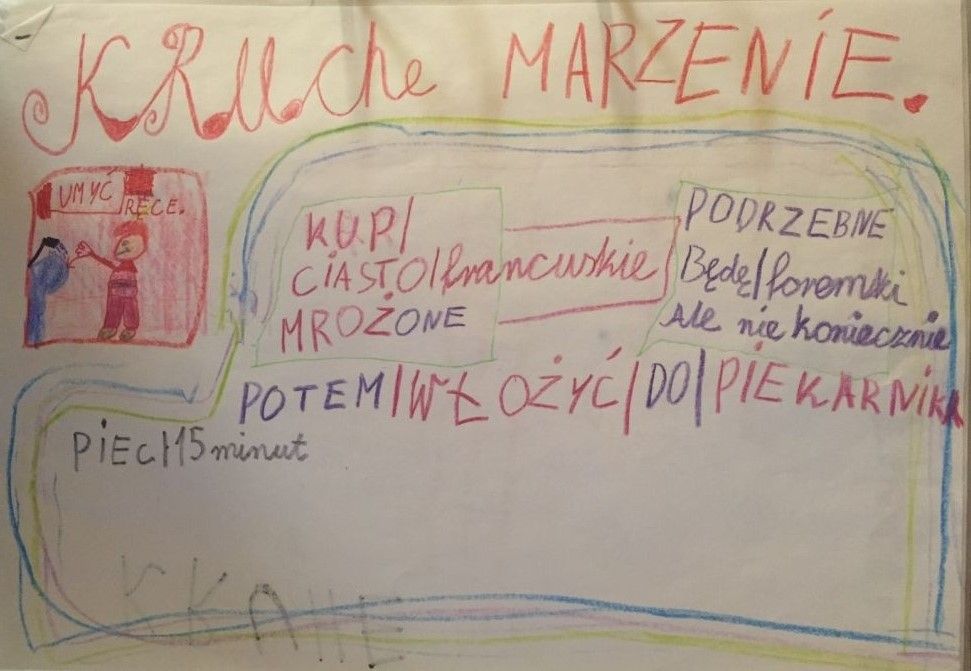 KRUche MARZENIE.
UMYĆ
RĘCE.
KUP/
CIASTO/francuskie
MROŻONE
PODRZEBNE
Będę/foremki
Ale nie koniecznie
POTEM/WŁOŻYĆ/DO/PIEKARNIKA
PIEC/15 minut